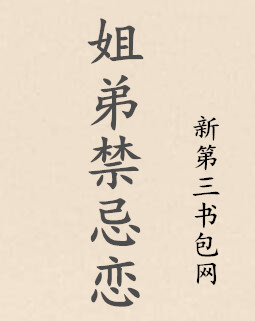 姐弟禁忌恋
新第三书包网